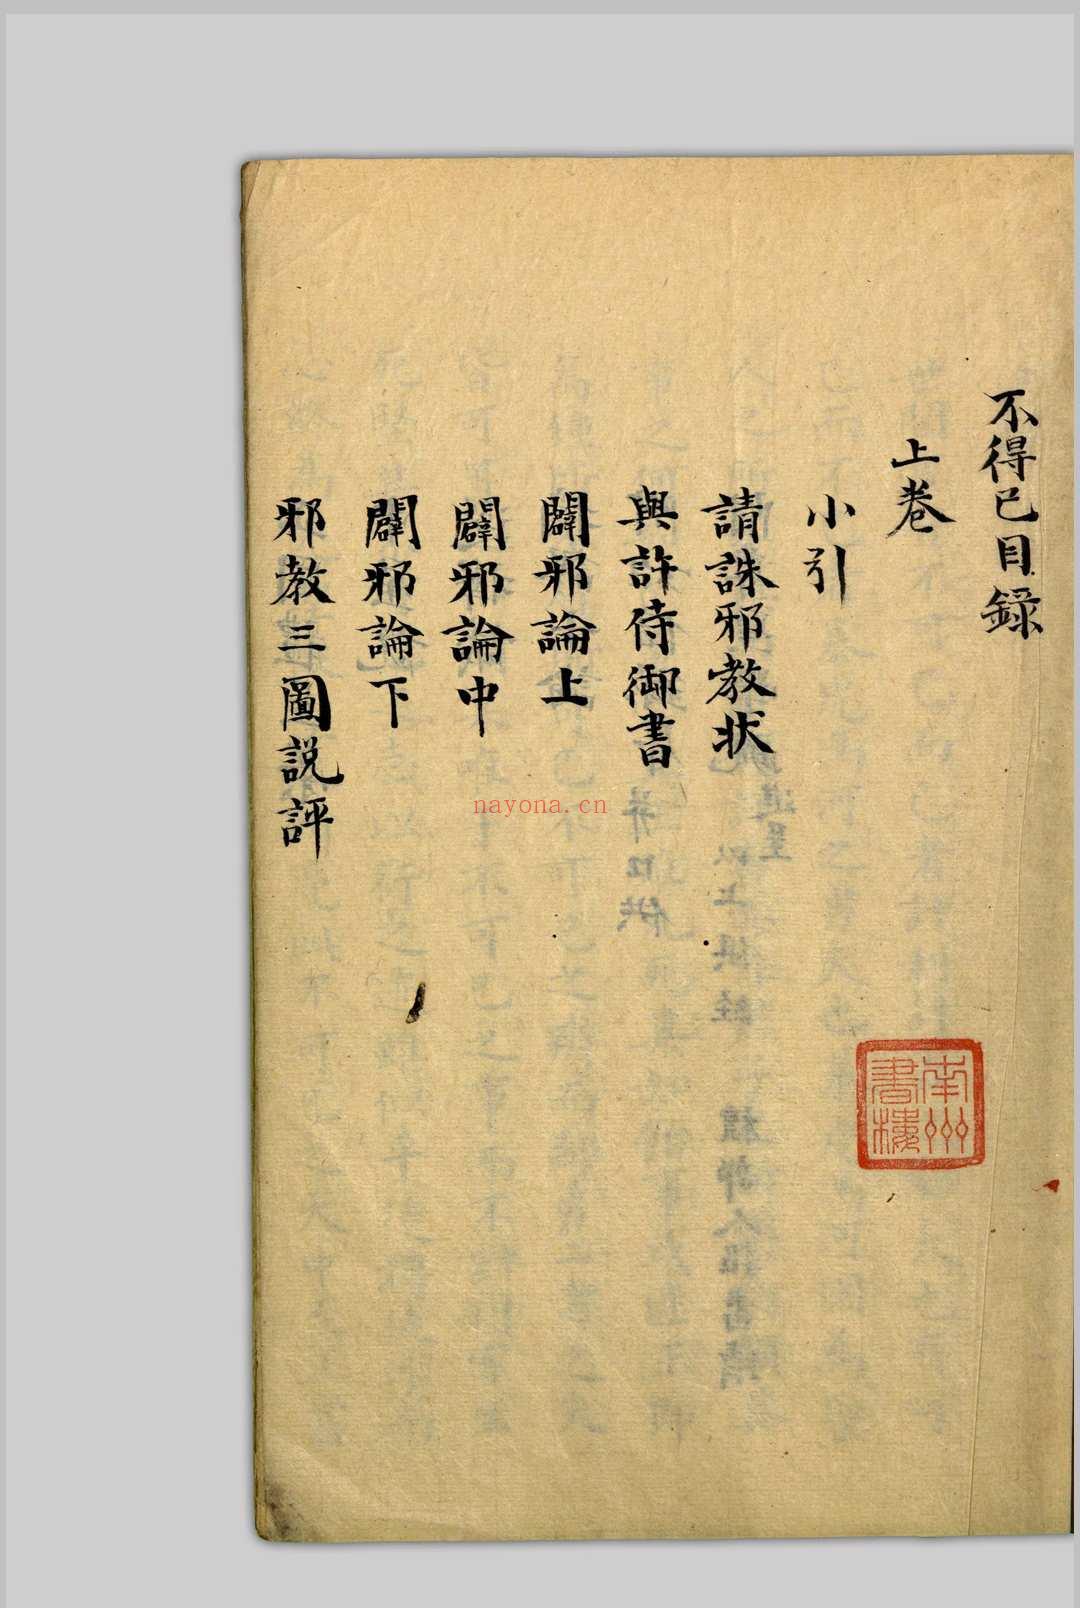 不得已目錄
上卷
小引
請誅邪教状
與許侍御書
闢邪論上
闢邪論中
闢邪論下
邪教三圖説評
南州書樓
nayona.cn